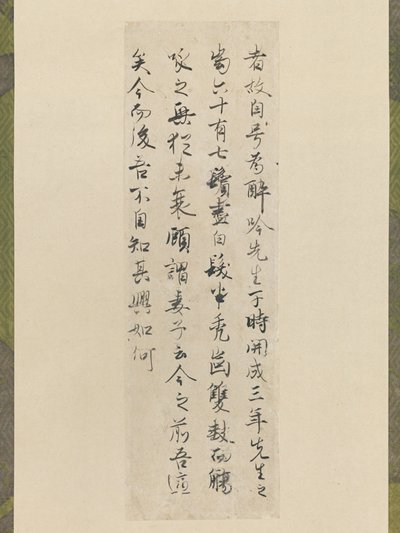 者故自号為醉吟先生于時開成三年先生之
齒六十有七鬢盡白髮半禿齒雙缺而觴
詠之興猶未衰顧謂妻子云今之前吾適
矣今而後吾不自知其興如何